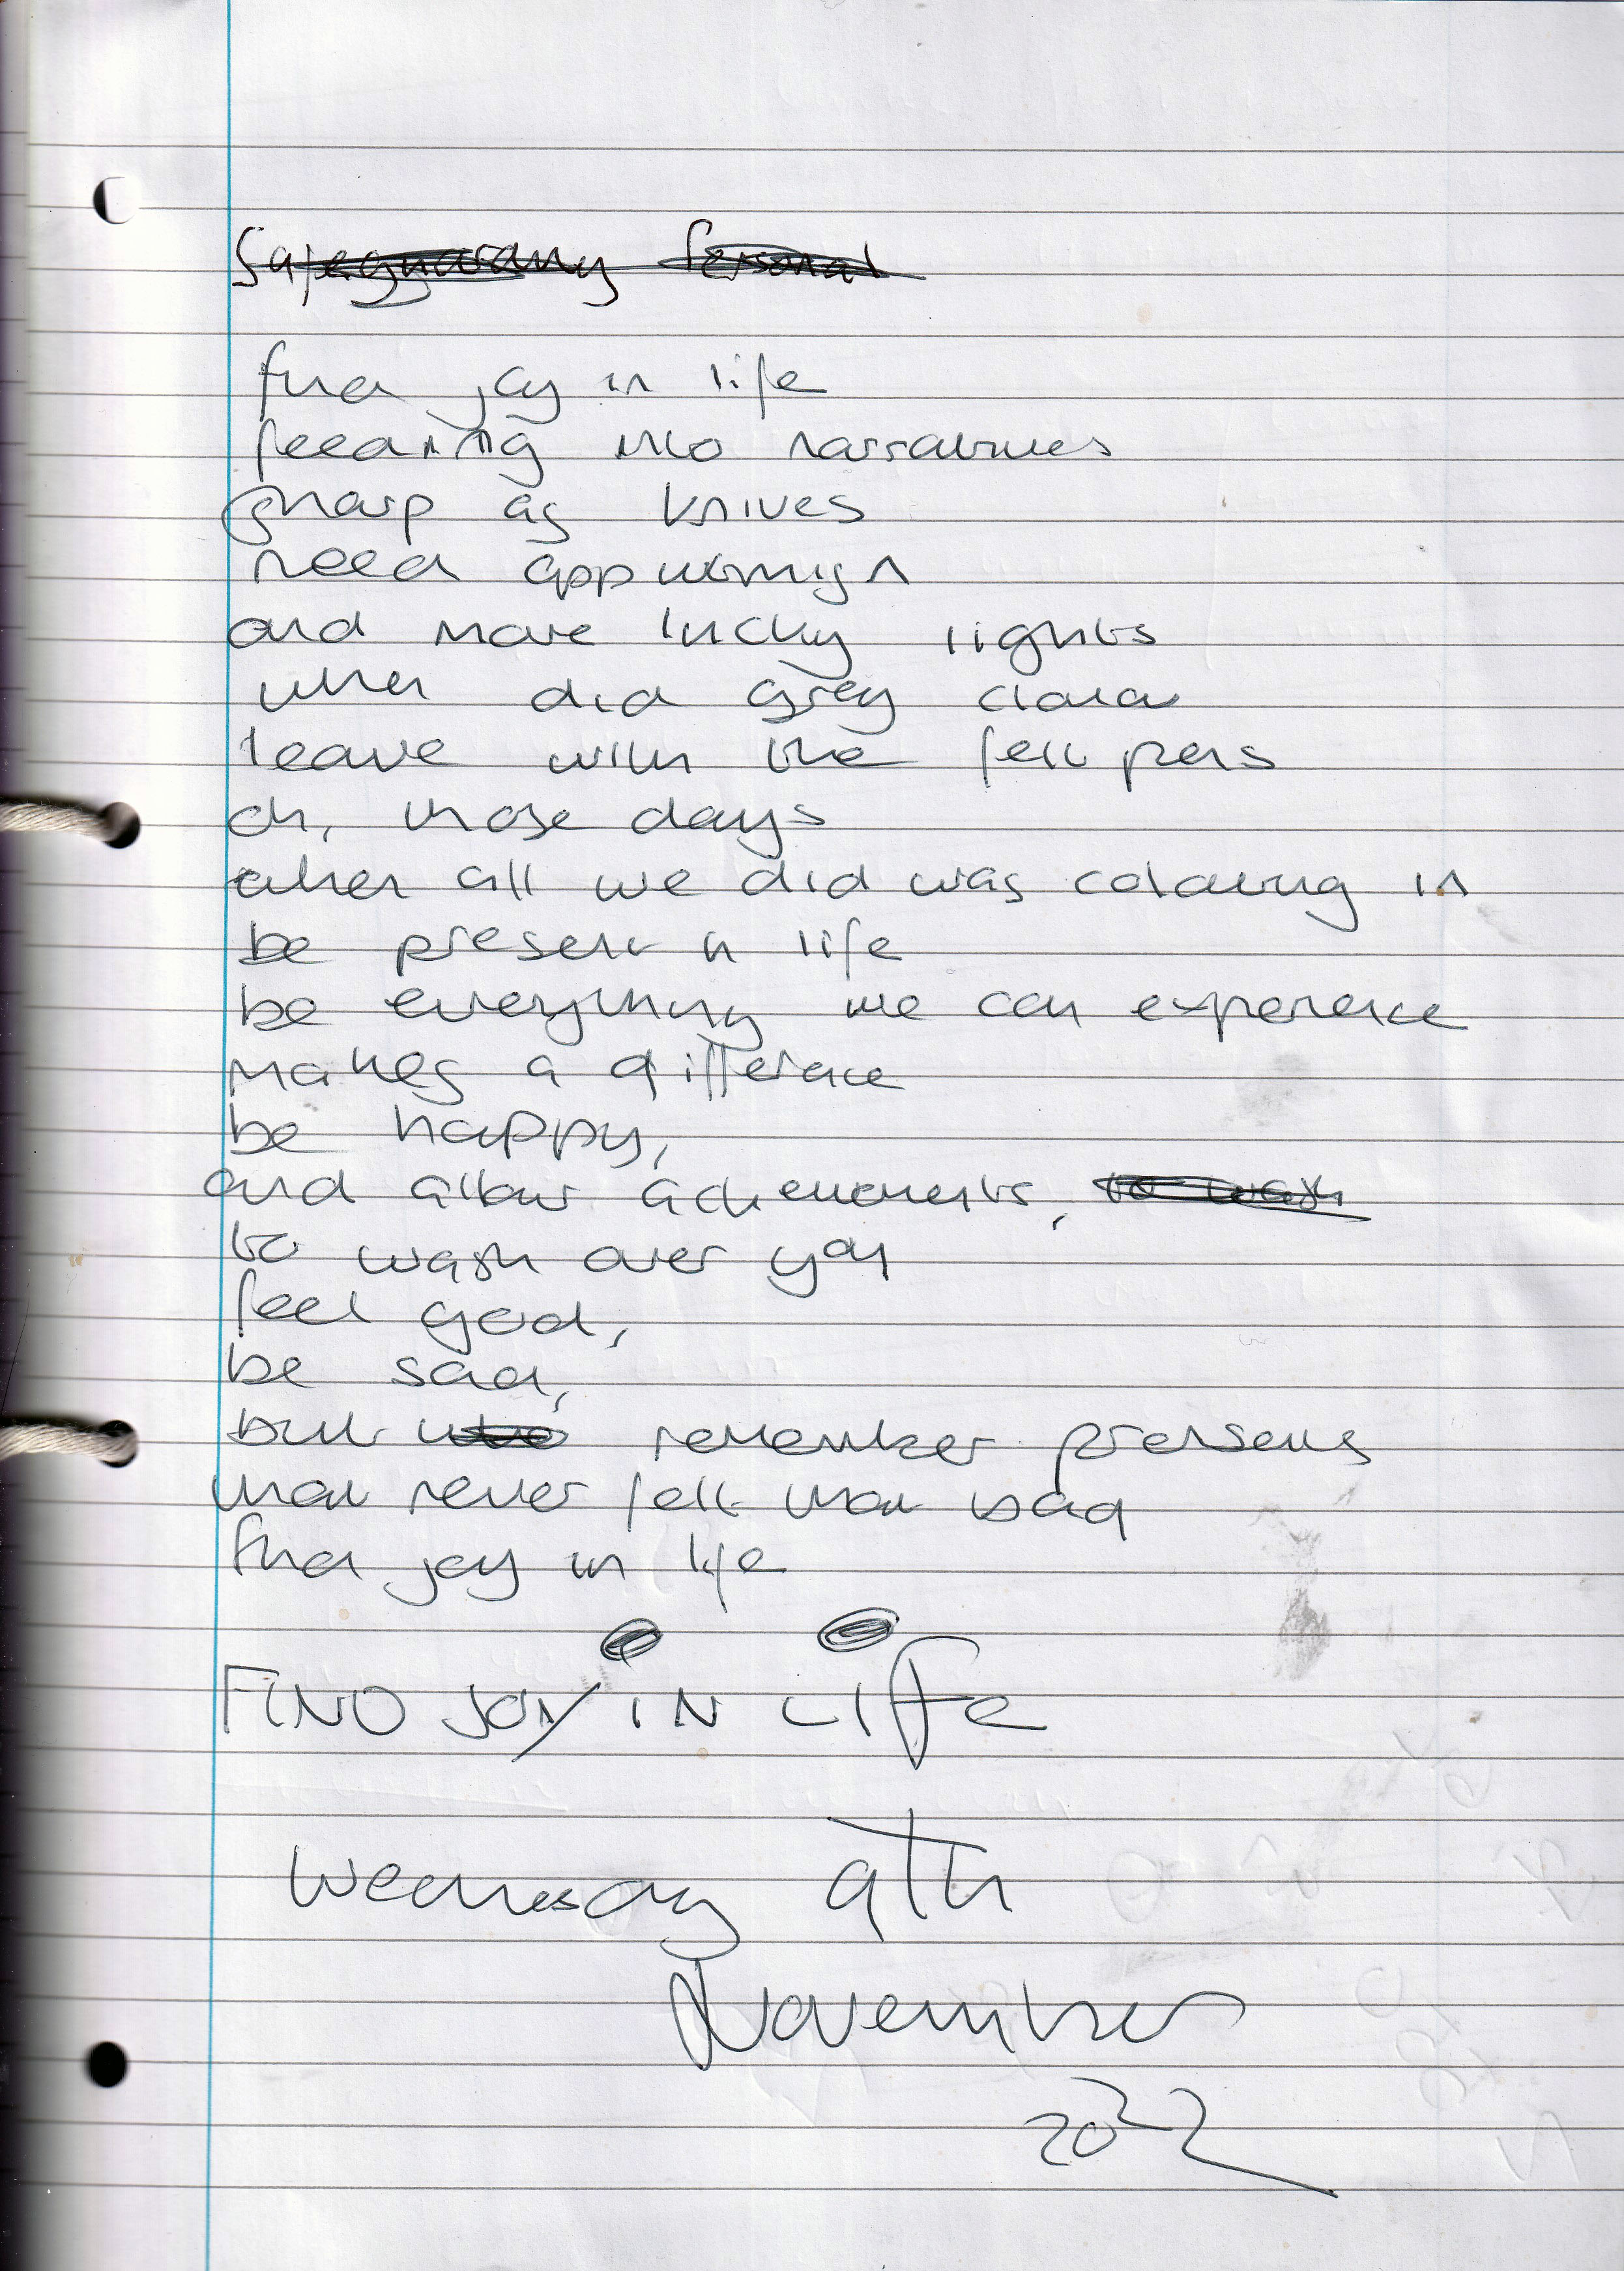 Safeguarding Personal
find joy in life
feeding into narratives
sharp as knives
need
and more lucky lights
when did grey cloud
leave with the felt pens
oh, those days
when all we did was colouring in
be present in life
be everything we can experience
makes a difference
be happy,
and allow achievements, to wash
to wash over you
feel good,
be sad,
but remember
that never felt that bad
find joy in life
FIND JOY IN LIFE
Wednesday 9th
November
2022